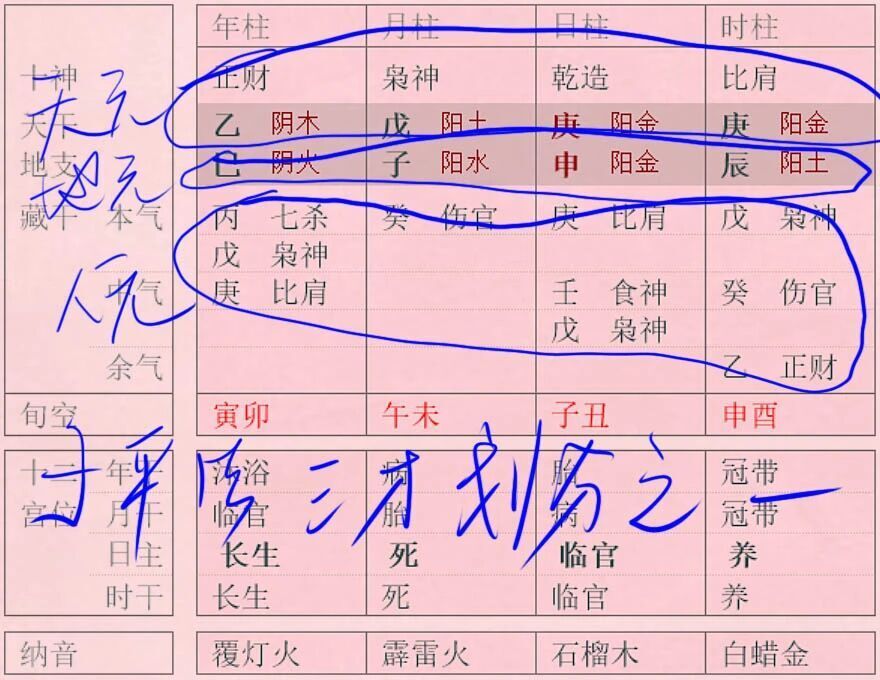 年柱 月柱 日柱 时柱
十神 正财 枭神 乾造 比肩
天元
天干 乙 阴木 戊 阳土 庚 阳金 庚 阳金
地支 巳 阴火 子 阳水 申 阳金 辰 阳土
地元
藏干 本气 丙 七杀 癸 伤官 庚 比肩 戊 枭神
戊 枭神
人元
中气 庚 比肩 壬 食神 癸 伤官
戊 枭神
余气 乙 正财
旬空 寅卯 午未 子丑 申酉
子平 三才划分之一
十二 年干 沐浴 病 胎 冠带
宫位 月干 临官 胎 病 冠带
日主 长生 死 临官 养
时干 长生 死 临官 养
纳音 覆灯火 霹雷火 石榴木 白蜡金